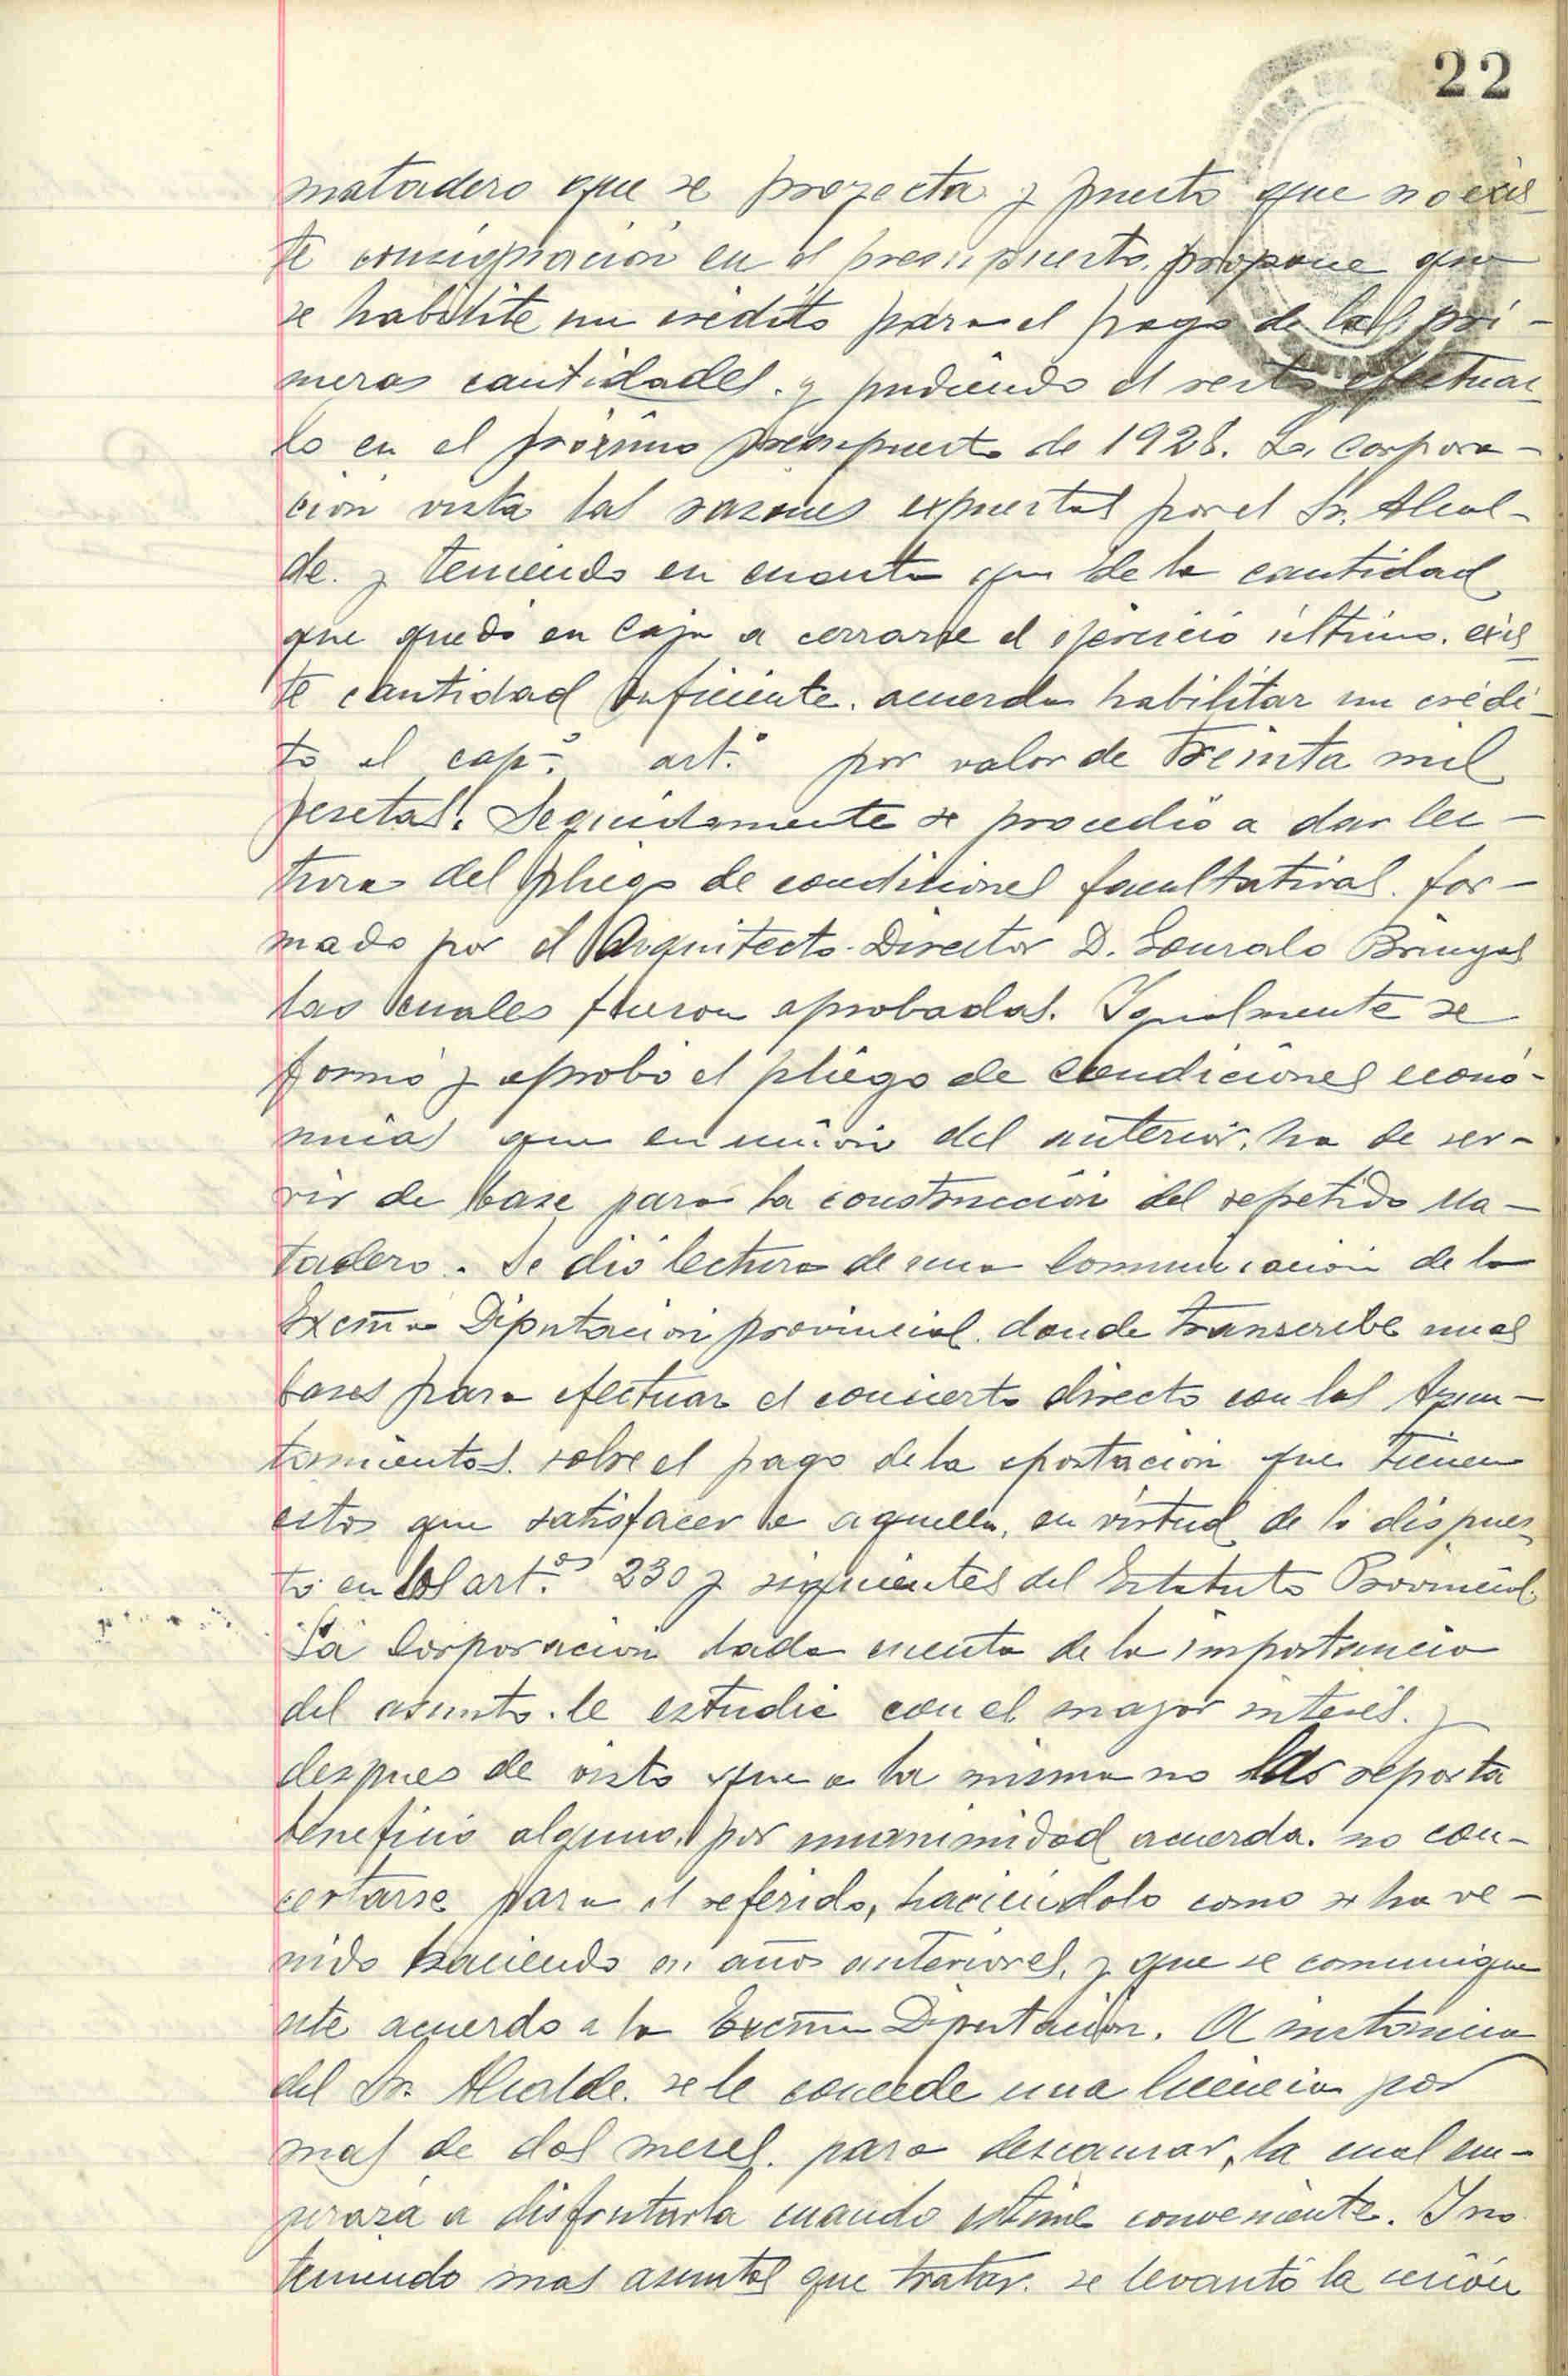 22
matadero que se proyecta y puesto que no exis-
te consignación en el presupuesto, propone que
se habilite un crédito para el pago de las pri-
meras cantidades y pudiendo el resto efectuar-
lo en el próximo presupuesto de 1928. La Corpora-
ción vista las razones expuestas por el Sr. Alcal-
de. y teniendo en cuenta que de la cantidad
que quedó en Caja a cerrarse el ejercicio último. exis-
te cantidad suficiente. acuerda habilitar un crédi-
to al cap.º art.º por valor de Treinta mil
pesetas. Seguidamente se procedió a dar lec-
tura del pliego de condiciones facultativas. for-
mado por el Arquitecto-Director D. Gonzalo Bringas
las cuales fueron aprobadas. Igualmente se
formó y aprobó el pliego de condiciones econó-
micas que en unión del anterior, ha de ser-
vir de base para la construcción del repetido Ma-
tadero. Se dió lectura de una Comunicación de la
Excma Diputacion provincial. donde transcribe unas
bases para efectuar el concierto directo con los Ayun-
tamientos. sobre el pago de la aportación que tienen
estos que satisfacer a aquella, en virtud de lo dispues-
to en los art.os 230 y siguientes del Estatuto Provincial.
La Corporación dada cuenta de la importancia
del asunto. le estudia con el mayor interés. y
despues de visto que a la misma no las reporta
beneficio alguno, por unanimidad acuerda. no con-
certarse para el referido, haciéndolo como se ha ve-
nido haciendo en años anteriores, y que se comunique
este acuerdo a la Excma Diputación. A instancia
del Sr. Alcalde. se le concede una licencia por
mas de dos meses. para descansar, la cual em-
pezará a disfrutarla cuando estime conveniente. Y no
teniendo mas asuntos que tratar. se levantó la sesión